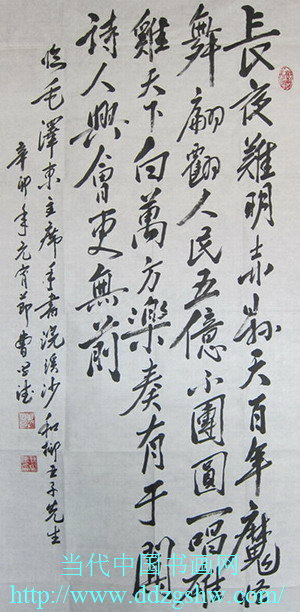 長夜難明赤縣天百年魔怪
舞翩躚人民五億不團圓一唱雄
雞天下白萬方樂奏有于闐
詩人興會更無前
臨毛澤東主席手書浣溪沙和柳亞子先生
辛卯年元宵節曹
当代中国书画网
http://www.ddzgshw.com